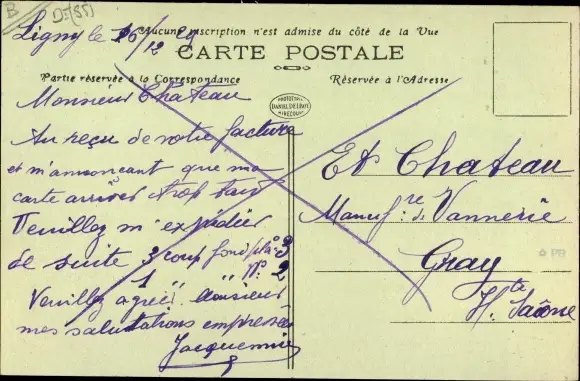 B
D:(55)
Ligny le 26/12 29
Aucune inscription n'est admise du côté de la Vue
CARTE POSTALE
Partie réservée à la Correspondance
Réservée à l'Adresse
Monsieur Chateau
Au reçu de votre facture
et m'annoncant que ma
carte arriver trop tard
Veuillez m'expédier
de suite 3 coup fond plat n° 3
1 " " N° 2
Veuillez agréer Monsieur
mes salutations empressées
Jacquemin
PHOTOTYPIE
DANIEL DELBOY
MIRECOURT
Et. Chateau
Manuf.re de Vannerie
Gray
Hte Saône